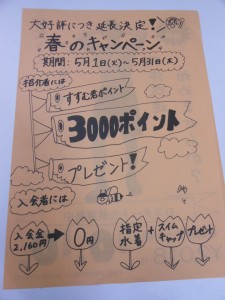 大好評につき延長決定!
春のキャンペーン
期間:5月1日(火)~5月31日(木)
紹介者には
すすむ君ポイント
3000ポイント
プレゼント!
入会者には
入会金
2,160円
0円
指定
水着
+
スイム
キャップ
プレゼント